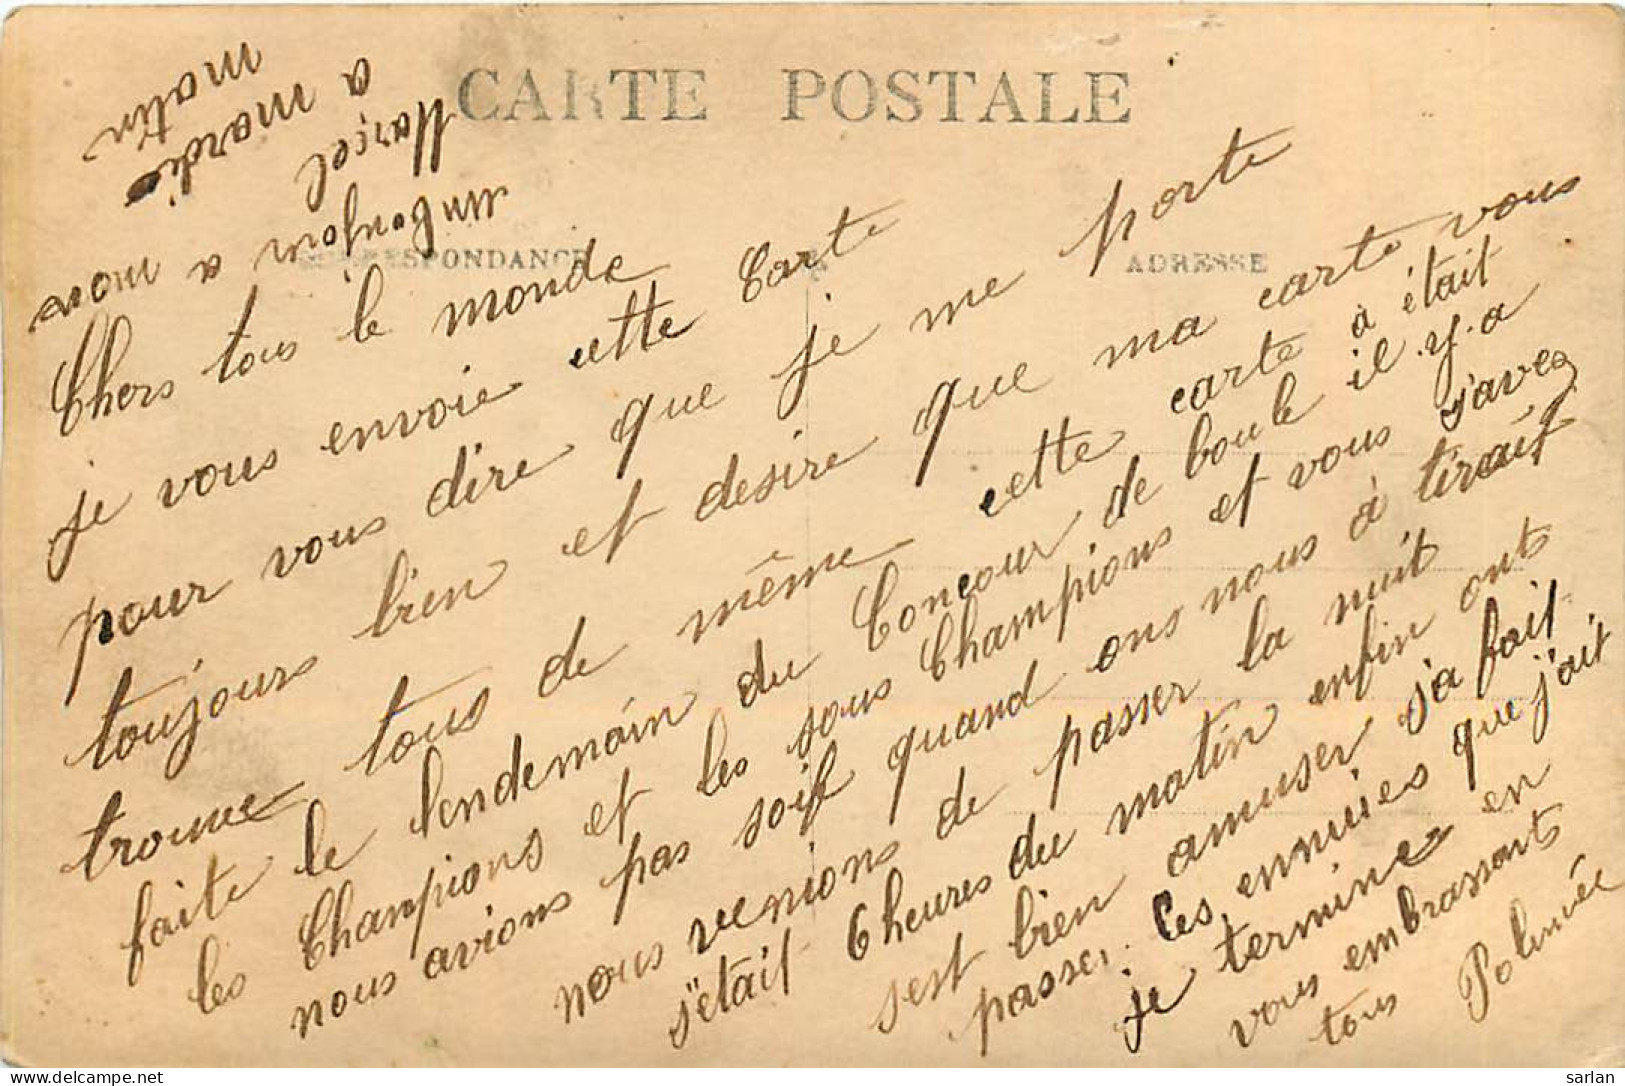 CARTE POSTALE
CORRESPONDANCE
ADRESSE
Chers tous le monde
je vous envoie cette Carte
pour vous dire que je me porte
toujours bien et desire que ma carte vous
trouve tous de même cette carte à était
faite le lendemain du Concour de boule il.y.a
les Champions et les sous Champions et vous savez
nous avions pas soif quand ons nous à tirait
nous venions de passer la nuit
s'était 6 heures du matin enfin onts
sest bien amuser s'a fait
passer. Ces ennuies que j'ait
je termine en
vous embrassants
tous
un bonjour a mon
Marcel
a mardi
matin
sarlan